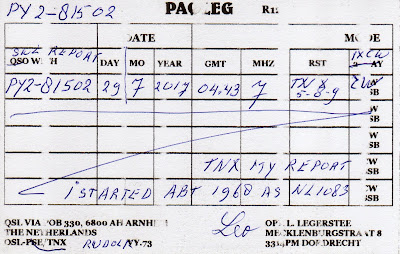 PY2-81502 PA0LEG
DATE MODE
SWL REPORT
QSO WITH DAY MO YEAR GMT MHZ RST
PY2-81502 29 7 2017 04.43 7 TNX 5-8-9 CW
SSB
TNX MY REPORT
I STARTED ABT 1968 AS NL1083
QSL VIA POB 330, 6800 AH ARNHEM
THE NETHERLANDS
QSL-PSE, TNX RUDOLF 73
Leo
OP. L. LEGERSTEE
MECKLENBURGSTRAAT 8
DORDRECHT